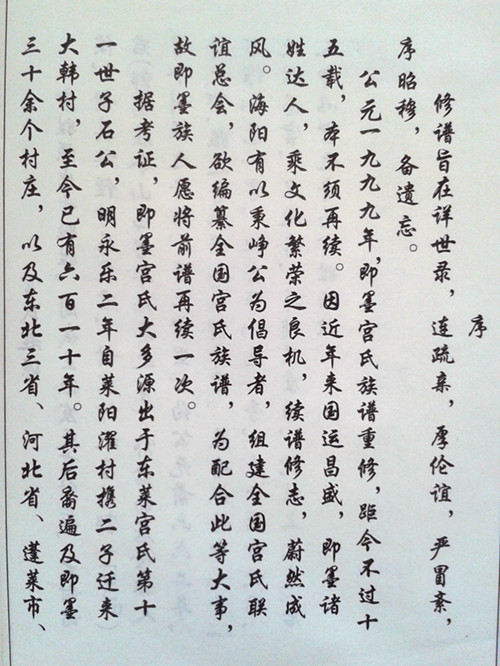 序
修谱旨在详世录，连疏亲，厚伦谊，严冒紊，
序昭穆，备遗忘。
公元一九九九年，即墨宫氏族谱重修，距今不过十
五载，本不须再续。因近年来国运昌盛，即墨诸
姓达人，乘文化繁荣之良机，续谱修志，蔚然成
风。海阳有以秉峥公为倡导者，组建全国宫氏联
谊总会，欲编纂全国宫氏族谱，为配合此等大事，
故即墨族人愿将前谱再续一次。
据考证，即墨宫氏大多源出于东莱宫氏第十
一世子石公，明永乐二年自莱阳濯村携二子迁来
大韩村，至今已有六百一十年。其后裔遍及即墨
三十余个村庄，以及东北三省、河北省、蓬莱市、